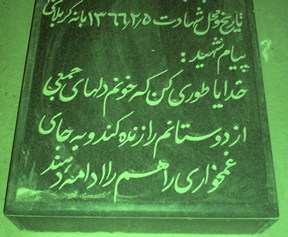 تاریخ و محل شهادت ۱۳۶۶/۲/۵ بانه کربلای
پیام شهید :
خدایا طوری کن که خونم دلهای جمعی
از دوستانم را زنده کند و به جای
غمخواری راهم را ادامه دهند